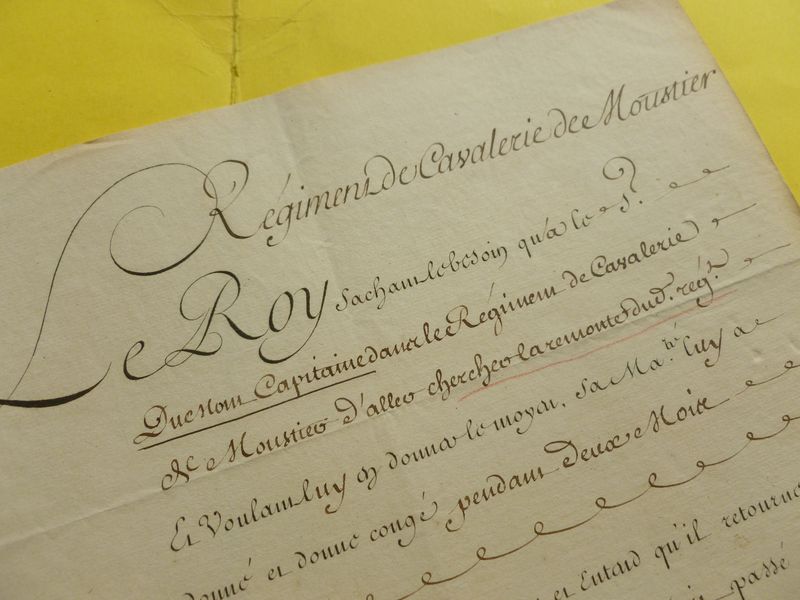 Régiment de Cavalerie de Moustier
Le Roy sachant le besoin qu'a le S.r
Ducnom Capitaine dans le Régiment de Cavalerie
de Moustier d'aller chercher la remonte dud.t rég.t
Et Voulant luy en donner le moyen, Sa Ma.té luy a
donné et donne congé pendant Deux Mois
et Entend qu'il retourne
passé